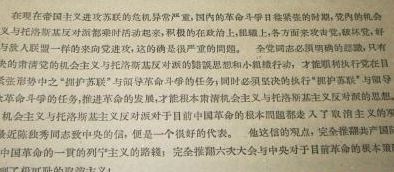 在现在帝国主义进攻苏联的危机异常严重,国内的革命斗争日益紧张的时期,党内的机会
义与托洛斯基反对派都乘时活动起来,积极的在政治上,组织上,各方面来攻击党,破坏党,好
与敌人联盟一样的来向党进攻,这的确是很严重的问题。 全党同志必须明确的认识,只有
决的肃清党的机会主义与托洛斯基反对派的错误思想和小组织行动,才能顺利执行党在目
紧张形势中之“拥护苏联”与领导革命斗争的任务;同时必须坚决的执行“拥护苏联”与领导
革命斗争的任务,推进革命的发展,才能根本肃清机会主义与托洛斯基主义反对派的思想。
机会主义与托洛斯基主义反对派对于目前中国革命的根本问题都走入了取消主义的
最近陈独秀同志致中央的信,便是一个很好的代表。 他这信的观点,完全推翻共产国际
中国革命的一贯的列宁主义的路线;完全推翻六次大会与中央对于目前革命的根本策
到了极可耻的取消主义!